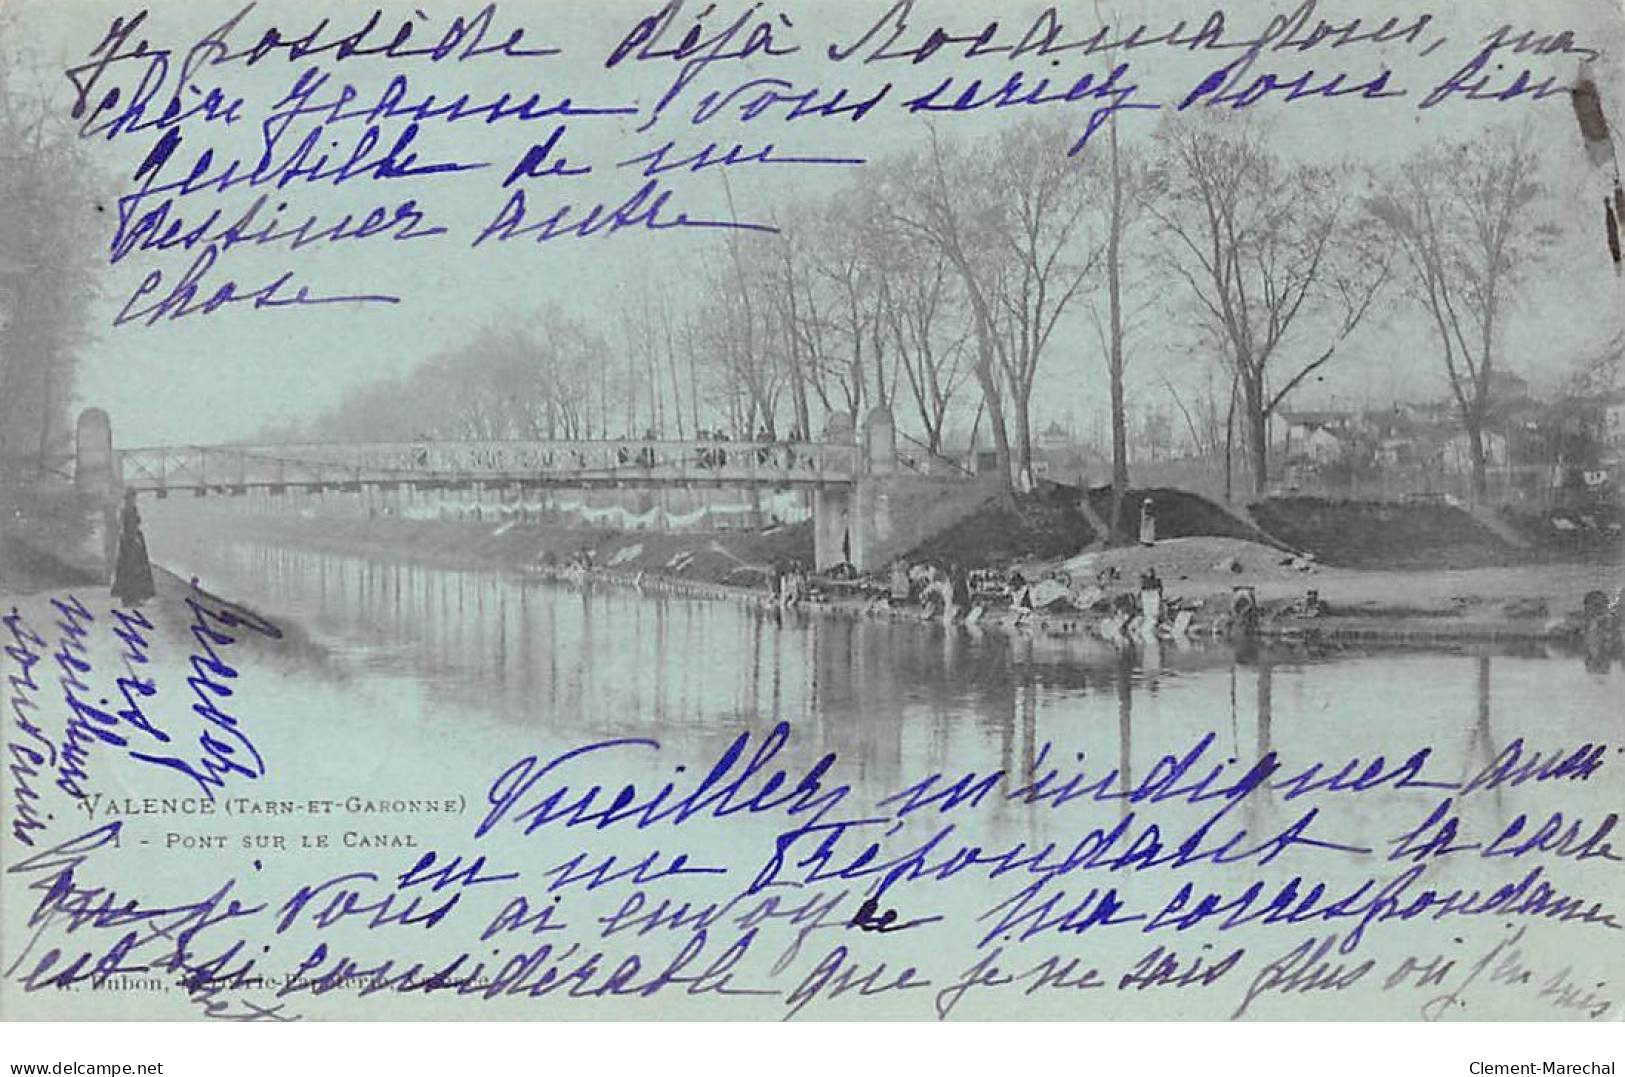 Je possède déjà Rocamadour, ma
chère Jeanne, vous seriez donc bien
gentille de me
destiner autre
chose
Recevez
mes
meilleurs
souvenirs
VALENCE (TARN-ET-GARONNE)
1 - PONT SUR LE CANAL
Veuillez m'indiquer aussi
en me répondant la carte
que je vous ai envoyée ma correspondance
est si considérable que je ne sais plus où j'en suis
Dubon,
delcampe.net
Clement-Marechal